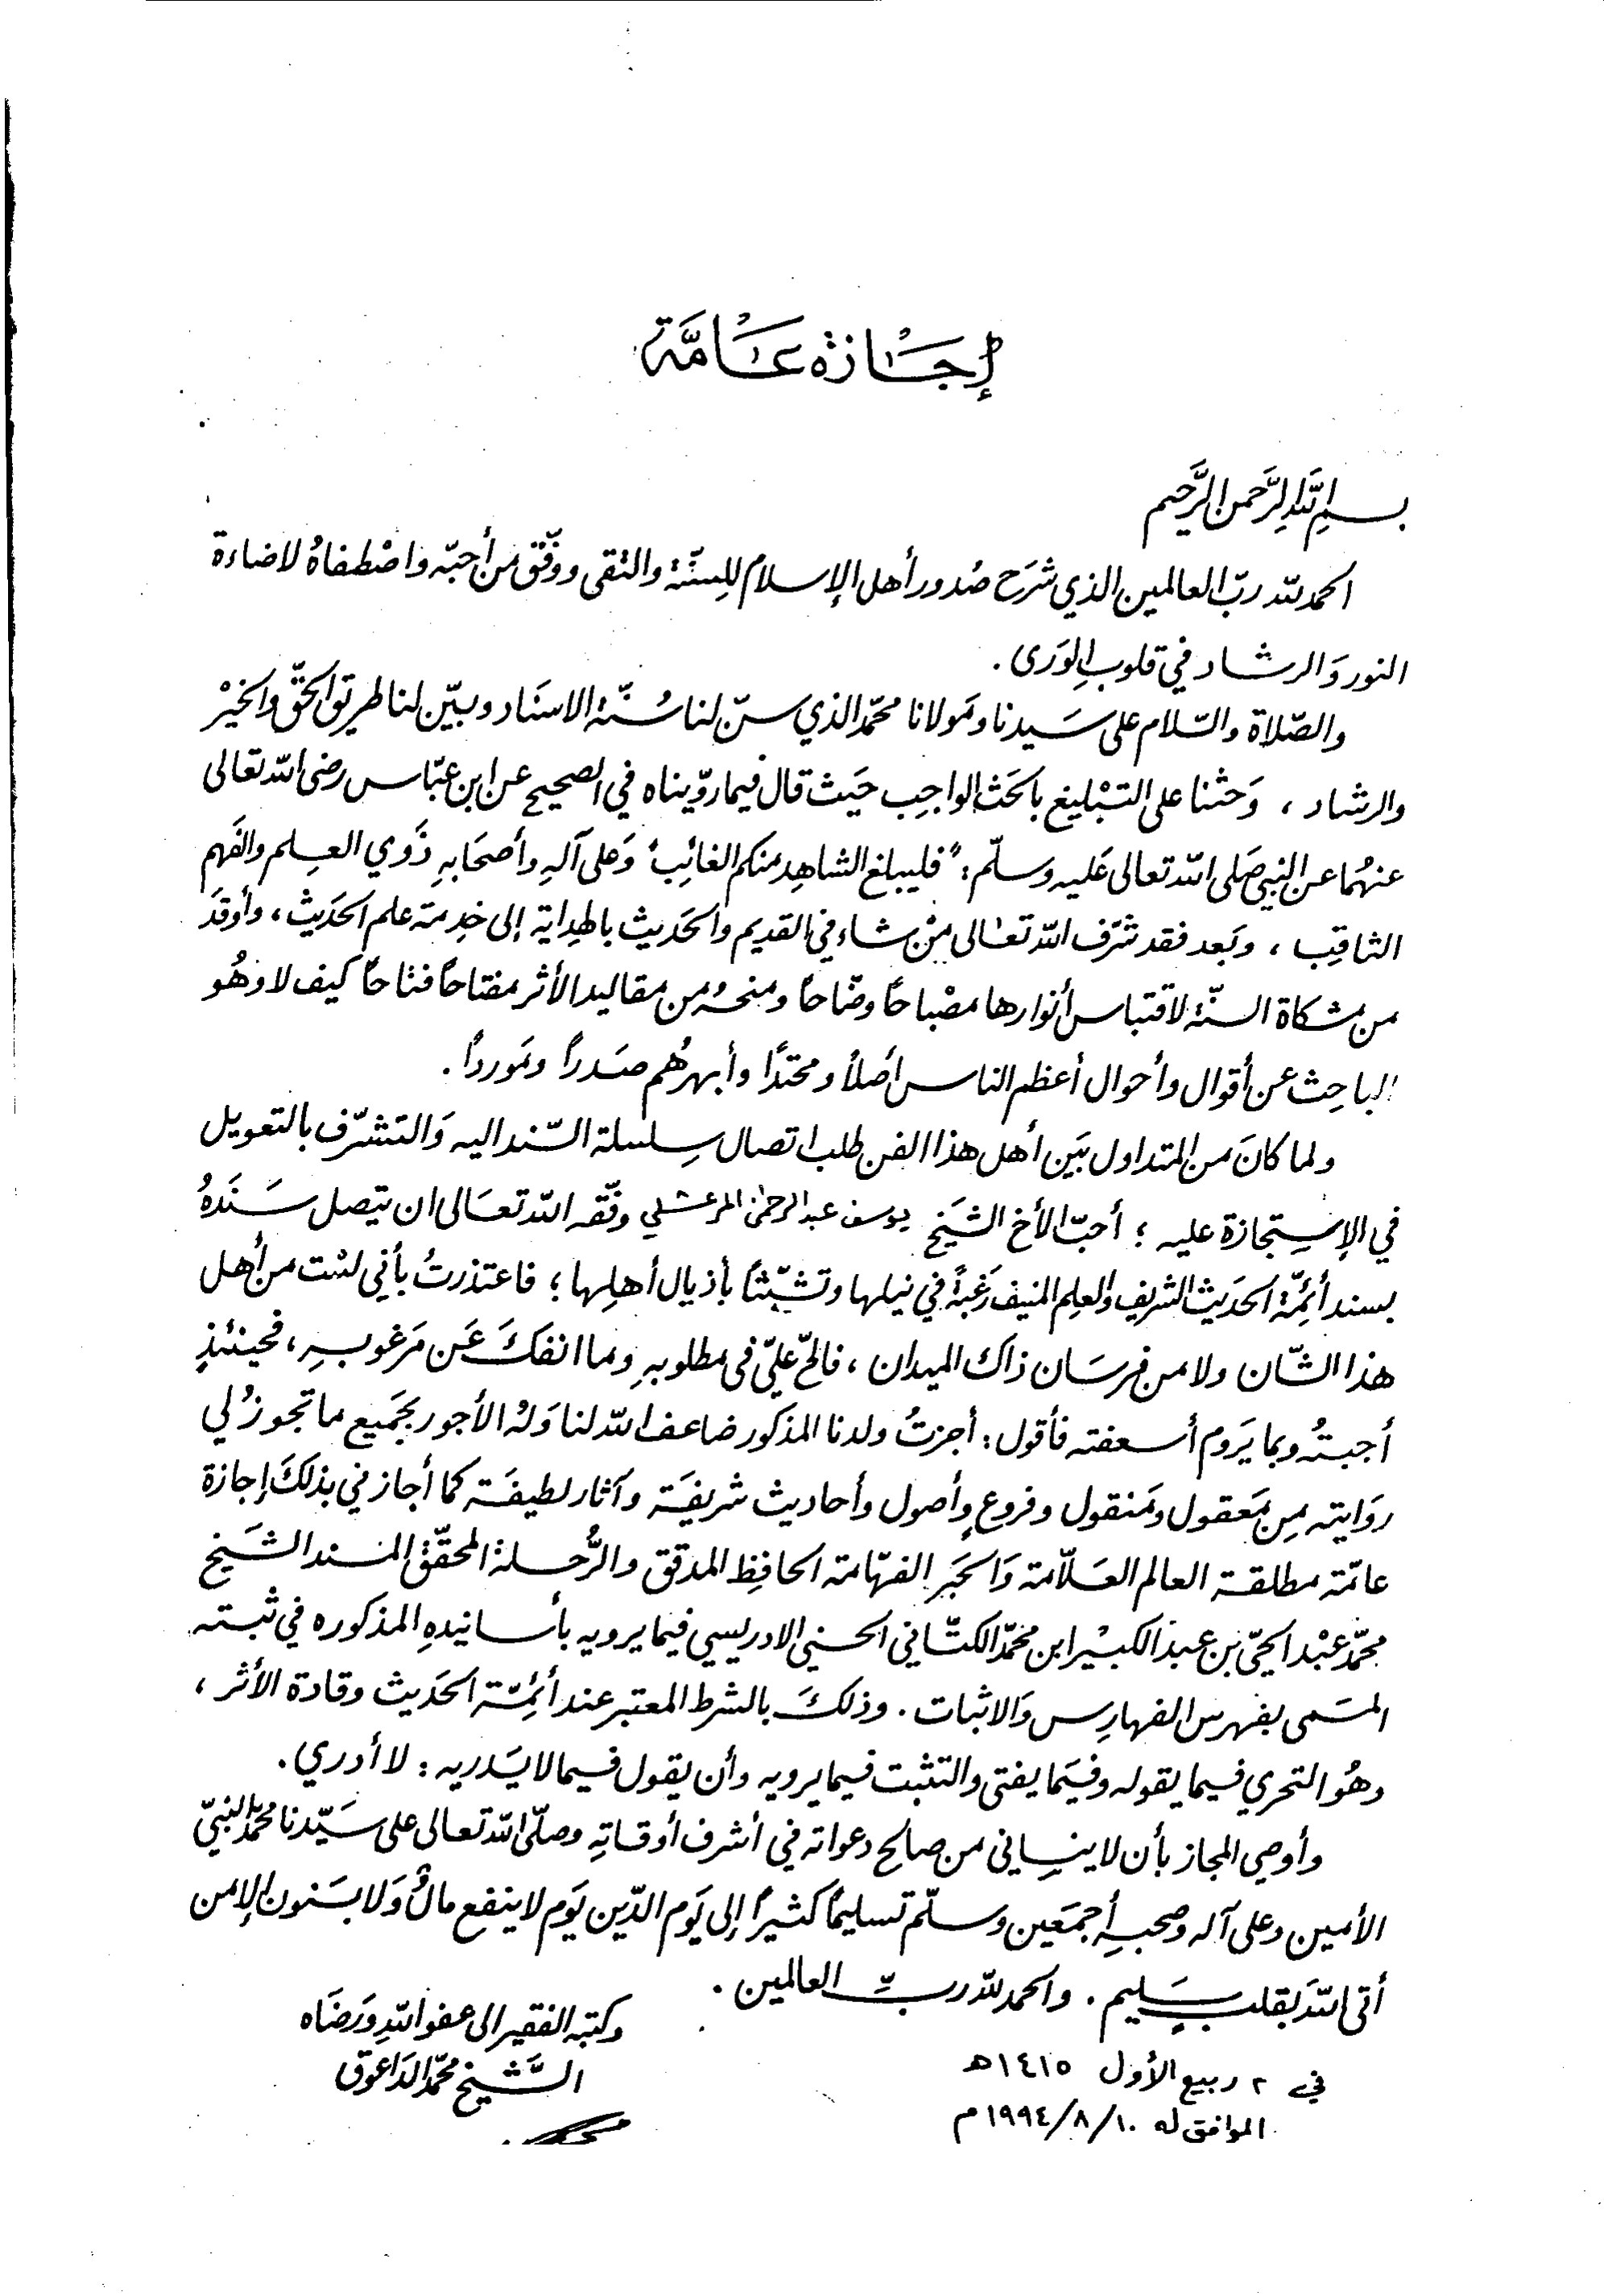 إجَازة عَامَّة
بسم الله الرَّحمن الرَّحيم
الحمد لله ربّ العالمين الذي شرَح صُدور أهل الإسلام للسنّة والتقى ووفّق من أحبّه واصْطفاهُ لاضاءة
النور وَالرشاد في قلوب الوَرى .
والصّلاة والسّلام على سَيدنا ومَولانا محمّد الذي سنّ لنا سُنّة الاسنَاد وبيّن لنا طريق الحقّ والخيْر
والرشاد ، وَحثنا على التبْليغ بالحَث الواجِب حيَث قال فيما روّيناه في الصحيح عن ابن عبّاس رضى الله تعالى
عنهُما عن النبي صَلى الله تعالى عَليه وسلّم : "فليبلغ الشاهِد منكم الغائِب" وَعلى آلهِ وأصحَابهِ ذَوي العِلم والفَهم
الثاقِب ، وبَعد فقد شرّف الله تعَالى منْ شاء في القديم والحَديث بالهِداية إلى خِدمة علم الحَديث ، وأوقَدَ
من مشكاة السنّة لاقتباس أنوارها مصْباحاً وضّاحاً ومنحهُ من مقاليد الأثر مفتاحاً فتاحاً كيف لا وهُو
الباحِث عن أقوال وأحوال أعظم الناس أصَلاً ومحتدًا وأبهرهُم صَدراً ومَورداً .
ولما كانَ من المتداول بَين أهل هذا الفن طلب اتصال سِلسلة السّند اليه وَالتشرّف بالتعويل
في الإستِجازة عليه ؛ أحبّ الأخ الشيَخ يوسف عبد الرحمٰن المرعشلي وفّقه الله تعَالى ان يتصل سَندهُ
بسند أئِمّة الحَديث الشريف والعِلم المنيف رَغبةً في نيلها وتشبّثاً بأذيال أهلِها ؛ فاعتذرتُ بأني لسْت من أهل
هذا الشّان ولا من فرسَان ذاك الميدان ، فالحّ عليّ في مطلوبهِ وما انفكَ عَن مَرغوبهِ ، فحينئذٍ
أجبتهُ وبما يَروم أسعفته فأقول : أجزتُ ولدنا المذكور ضاعف الله لنا وَلهُ الأجور بجَميع ما تجوزُ لي
روَايته مِن مَعقول ومَنقول وفروعٍ وأصول وأحاديث شريفَة وآثار لطيفَة كما أجازني بذلكَ إجازة
عامّة مطلقة العالم العَلاّمة وَالحَبَر الفهّامة الحافِظ المدقق والرُّحلة المحقّق المسند الشيَخ
محمّد عبْد الحيّ بن عبد الكبيْر ابن محمّد الكتّاني الحسني الادريسي فيما يرويه بأسانيدهِ المذكوره في ثبته
المسَمى بفهرس الفهارِس وَالاثبات . وذلكَ بالشرط المعتبر عند أئِمّة الحَديث وقادة الأثر ،
وهُو التحري فيما يقوله وفيَما يفتى والتثبت فيما يرويه وأن يقول فيما لا يَدريه : لا أدري .
وأوصي المجاز بأن لا ينساني من صالح دعواته في أشرف أوقاتِه وصلّى الله تعالى على سَيّدنا محمّد النبيّ
الأمين وعلى آله وصحبهِ أجمَعين وسلّم تسليمًا كثيرًا إلى يَوم الدّين يَوم لا ينفع مالٌ وَلا بَنون إلا من
أتى اللهَ بقلبٍ سَليم . والحمد لله ربِّ العالمين .
وكتبه الفقير الى عفو اللهِ وَرضَاه
الشَّيخ محمّد الدَاعوق
في ٢ ربيع الأول ١٤١٥ه
الموافق له ١٩٩٤/٨/١٠ م